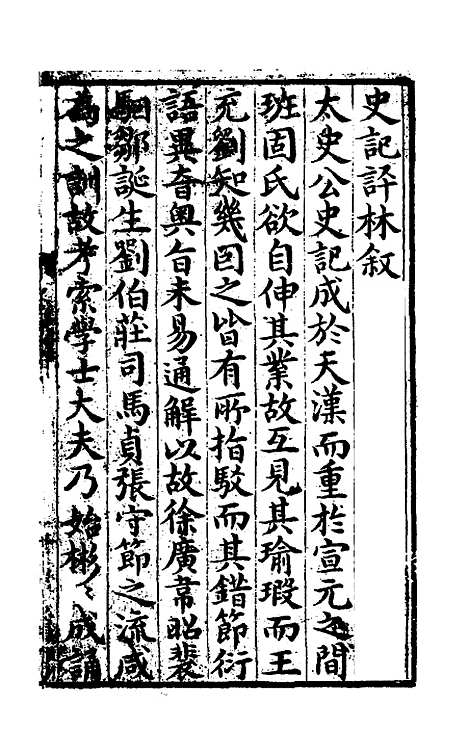 史記評林叙
太史公史記成於天漢而重於宣元之間
班固氏欲自伸其業故互見其瑜瑕而王
充劉知幾因之皆有所指駁而其錯節衍
語異音奥旨未易通解以故徐廣韋昭裴
駰鄒誕生劉伯莊司馬貞張守節之流咸
為之訓故考索學士大夫乃始彬〻成誦